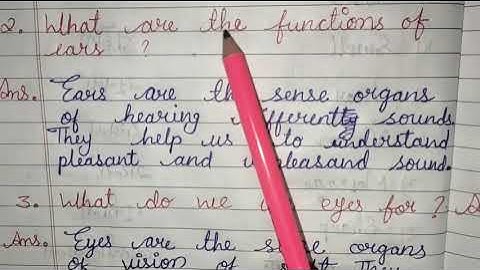 2. What are the functions of
ears ?
Ans. Ears are the sense organs
of hearing differently sounds
They help us to understand
pleasant and unpleasand sound.
3. What do we eyes for ?
Ans. Eyes are the organs
of vision of They